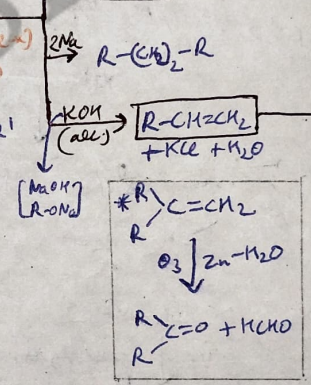 2Na
R-(CH2)2-R
KOH
(alc.)
R-CH=CH2
+KCl +H2O
NaOH
R-ONa
*R
C=CH2
R
O3 Zn-H2O
R
C=O +HCHO
R